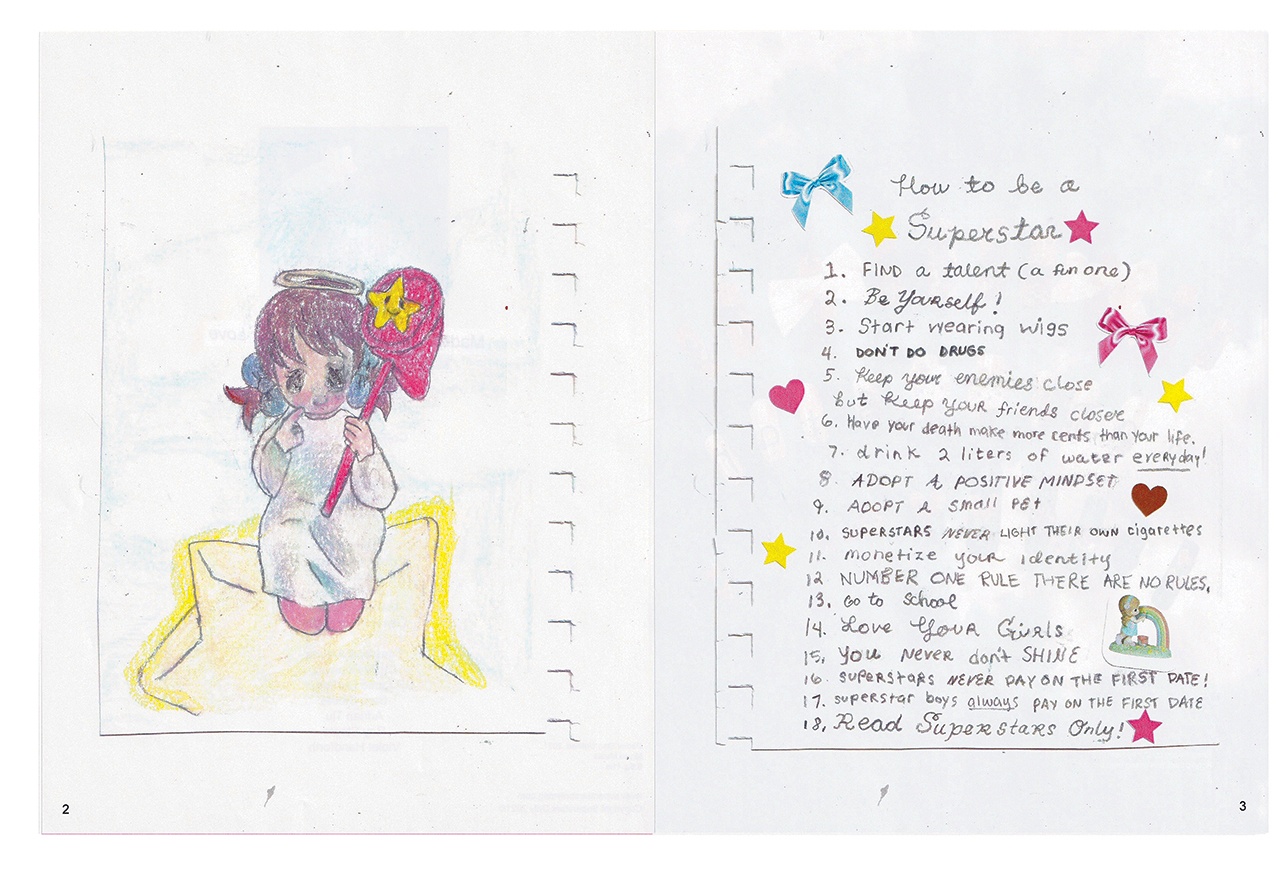 How to be a
Superstar
1. FIND a talent (a fun one)
2. Be Yourself!
3. Start wearing wigs
4. DON'T DO DRUGS
5. Keep your enemies close
but keep your friends closer
6. Have your death make more cents than your life.
7. drink 2 liters of water everyday!
8 ADOPT A POSITIVE MINDSET
9. ADOPT A small pet
10. SUPERSTARS NEVER LIGHT THEIR OWN cigarettes
11. monetize your identity
12 NUMBER ONE RULE THERE ARE NO RULES.
13. Go to school
14. Love Your Girls
15. you never don't SHINE
16. SUPERSTARS NEVER PAY ON THE FIRST DATE!
17. superstar boys always PAY ON THE FIRST DATE
18. Read Superstars Only!
2
3